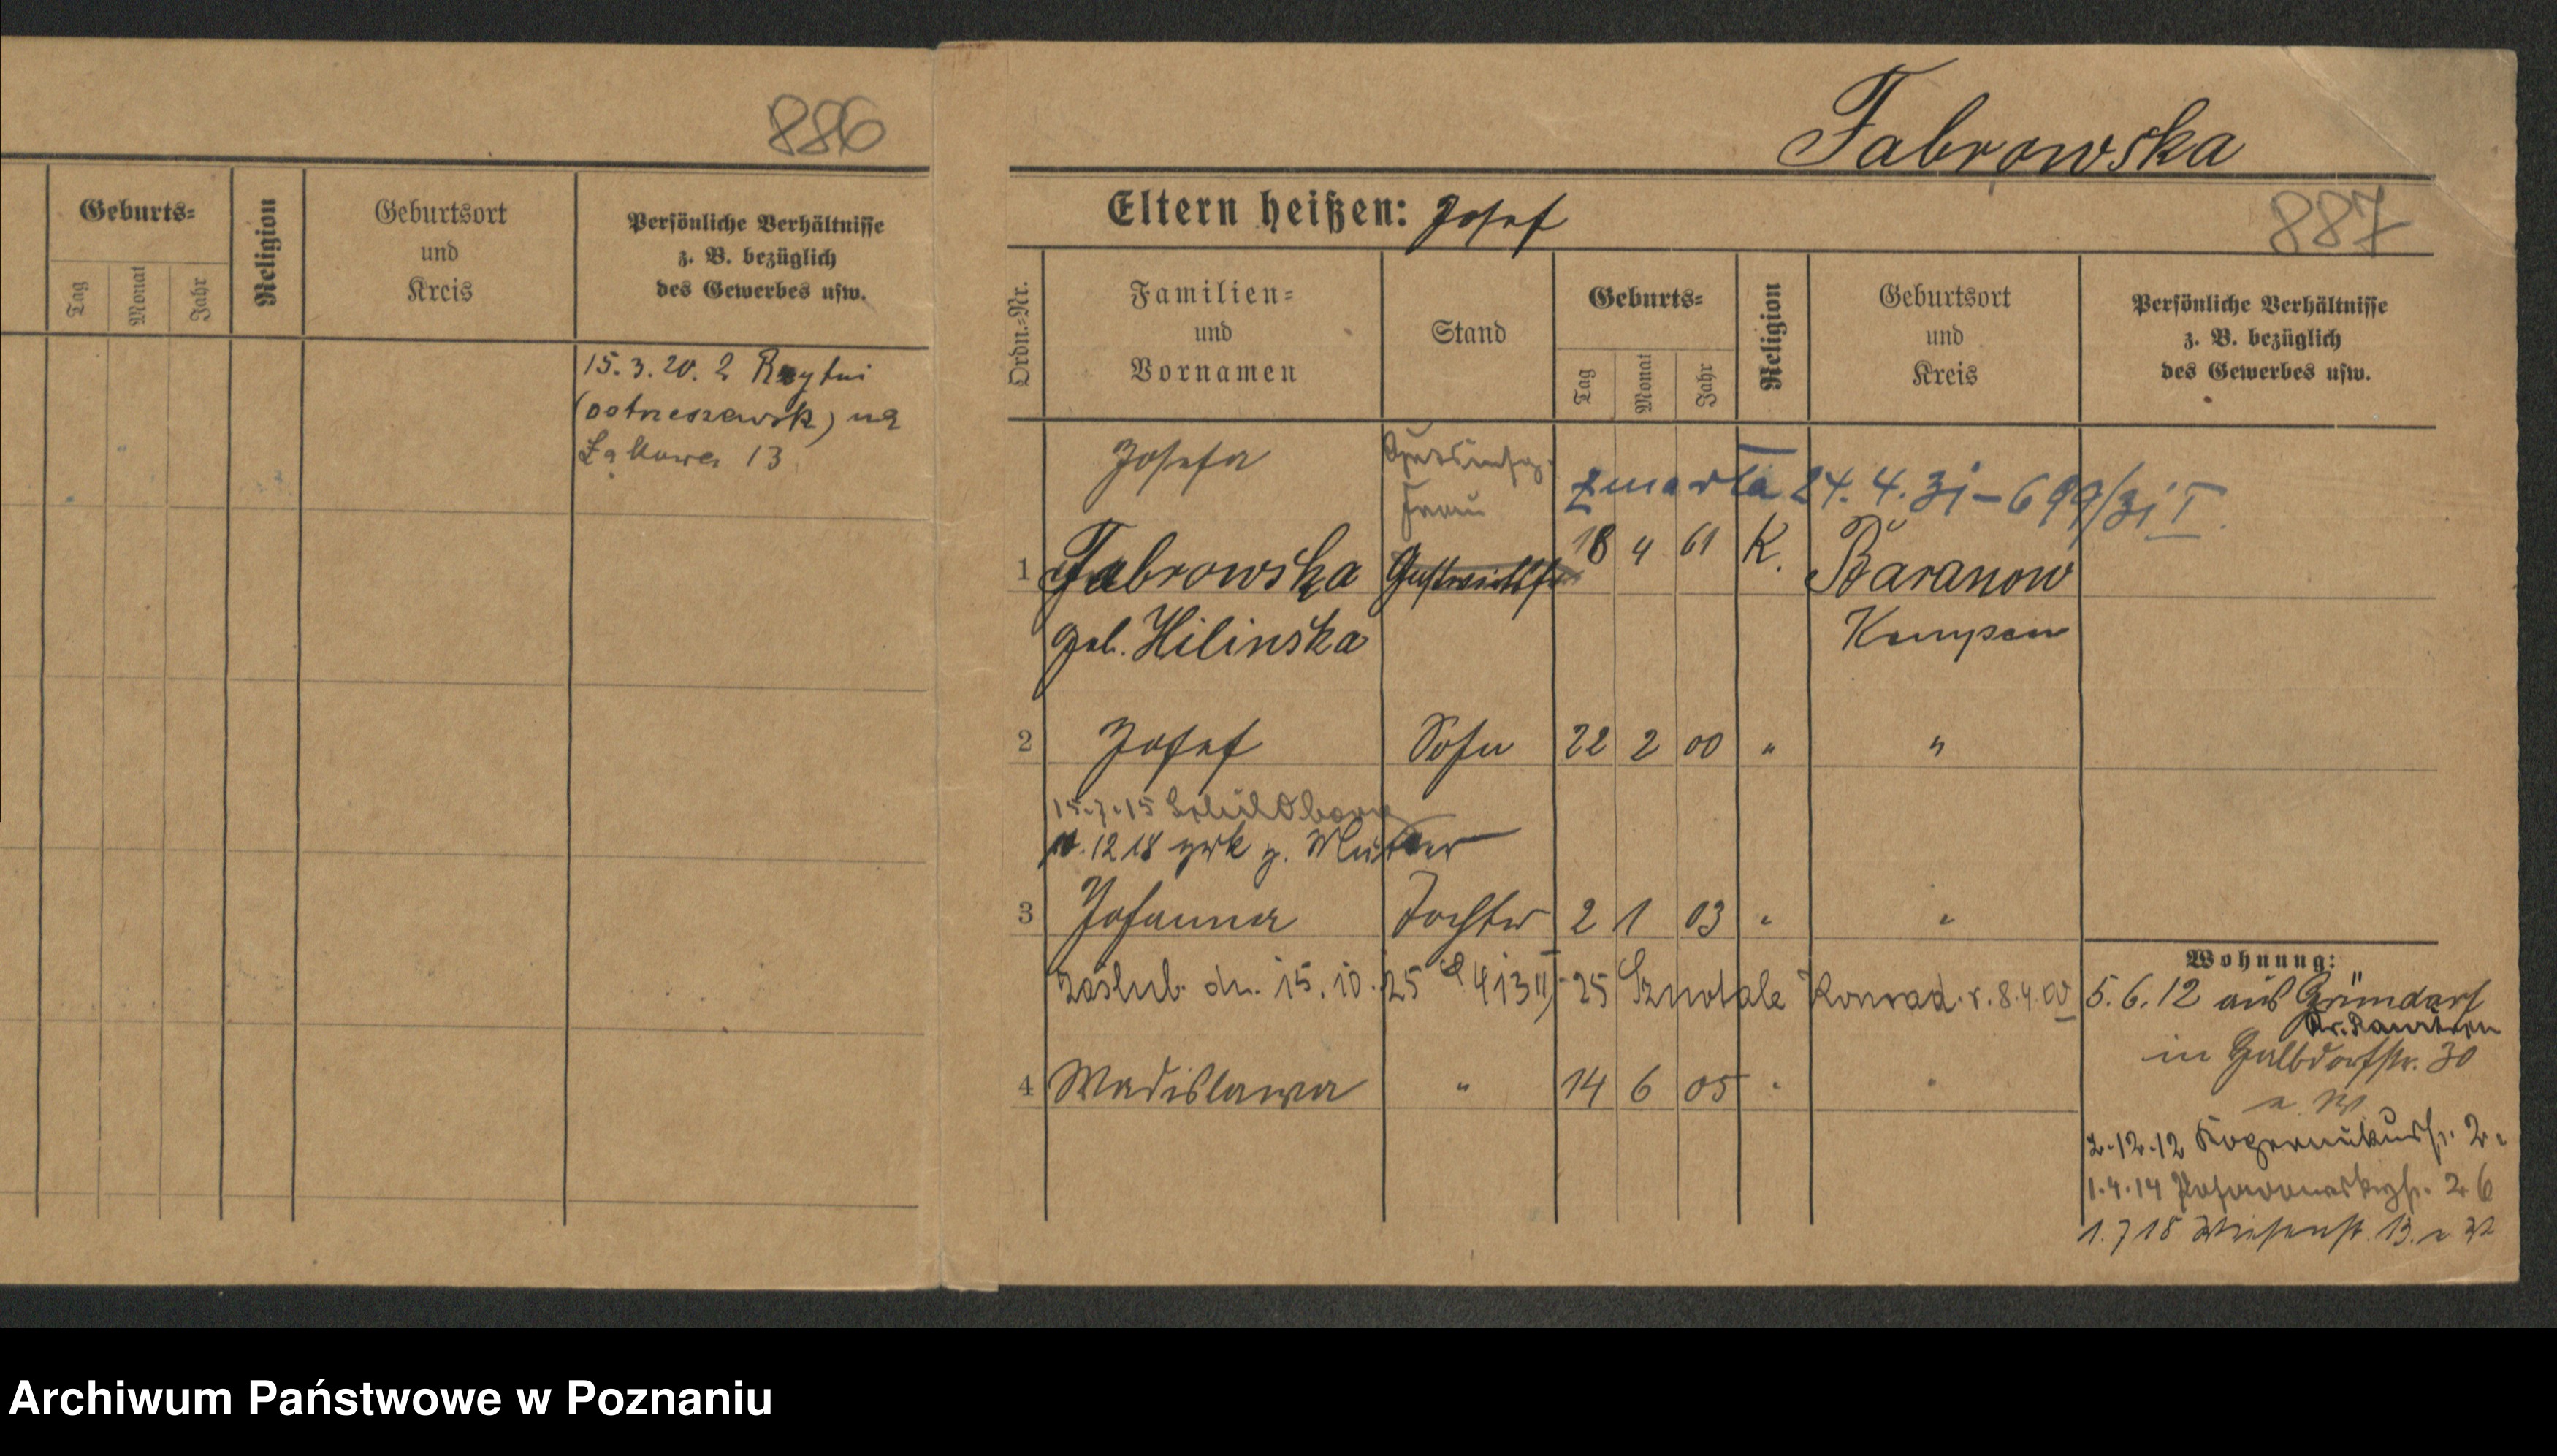 886
Geburts=
Tag
Monat
Jahr
Religion
Geburtsort
und
Kreis
Persönliche Verhältnisse
z. B. bezüglich
des Gewerbes usw.
15.3.20. 2
(ostrzeszewsk) na
Łąkowa 13
Fabrowska
887
Eltern heißen: Josef
Ordn.=Nr.
Familien=
und
Vornamen
Stand
Geburts=
Tag
Monat
Jahr
Religion
Geburtsort
und
Kreis
Persönliche Verhältnisse
z. B. bezüglich
des Gewerbes usw.
Josefa
Frau
zmarła 24.4.31 - 699/31 I.
1 Fabrowska 18 4 61 K. Baranow
geb. Hilinska Kempen
2 Josef Sohn 22 2 00 " "
15.7.15 Schildberg
12 18 zrk z. Mutter
3 Johanna Tochter 2 1 03 " "
zaślub. dn. 15.10.25 413 II - 25 Konrad r. 8.4.00
4 Wladislawa " 14 6 05 " "
Wohnung:
5.6.12 aus Gründorf
Kr.
in 30
2.12.12 Kopernikusstr. 2.
1.4.14 26
1.7 18 Wiesenstr. 13.
Archiwum Państwowe w Poznaniu